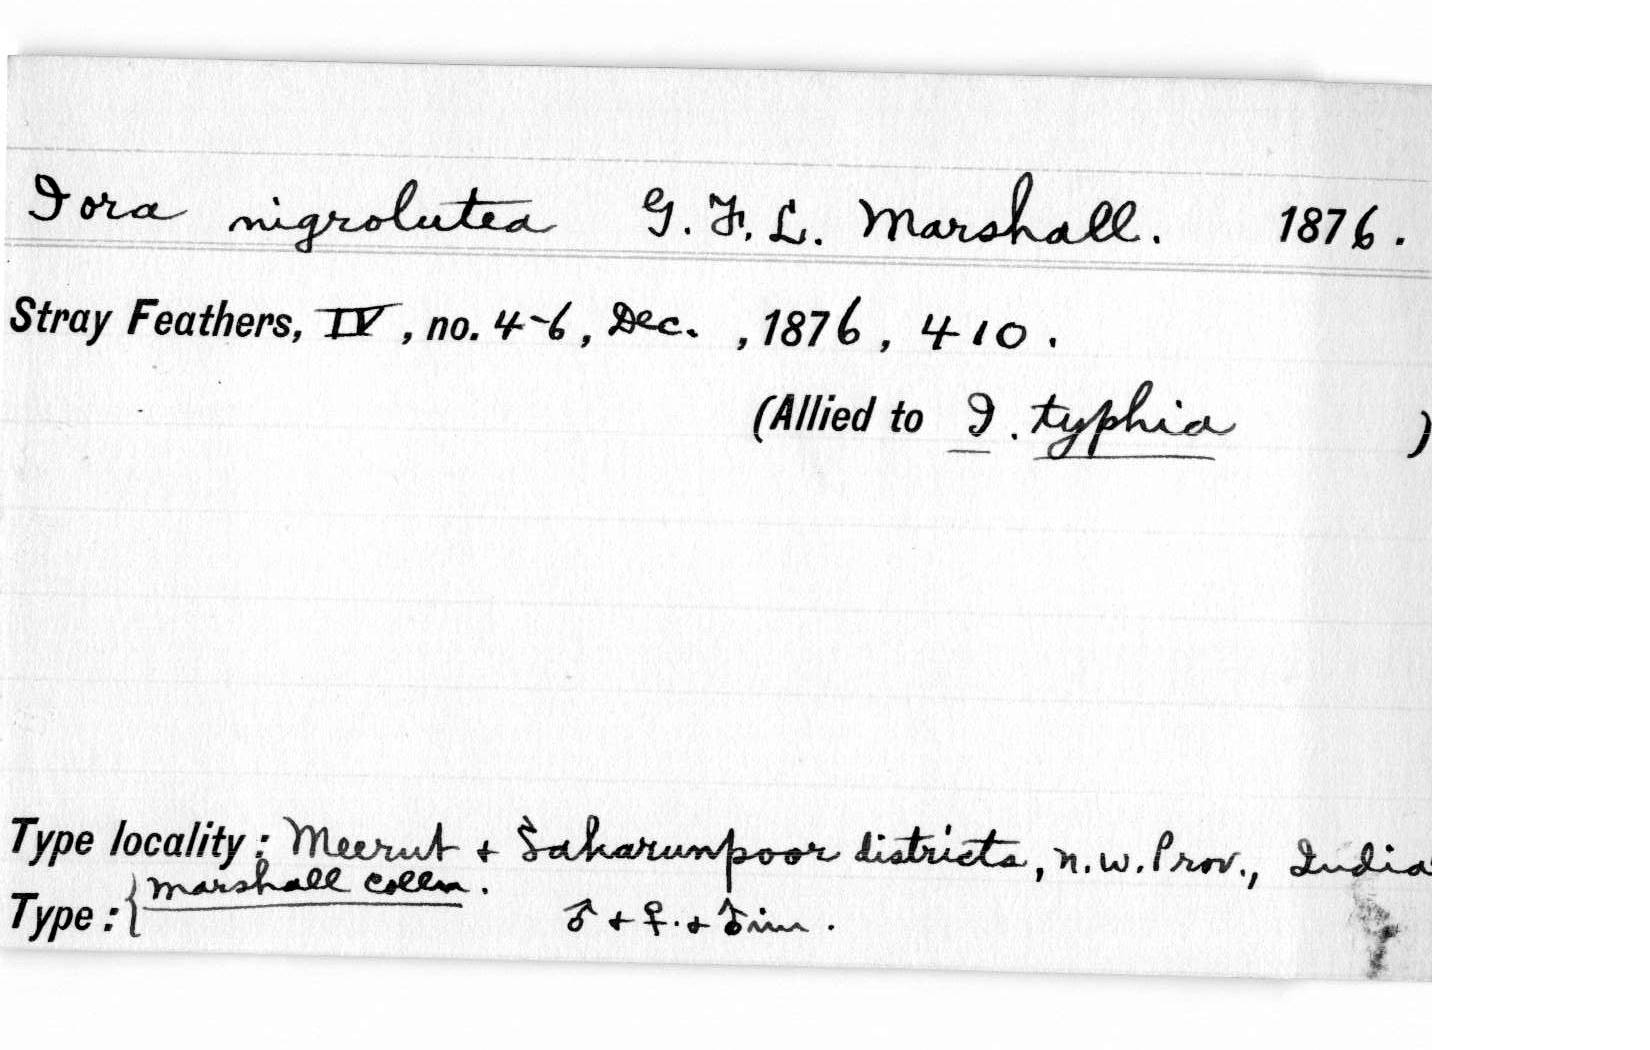 Iora nigrolutea G. F. L. Marshall. 1876.
Stray Feathers, IV, no. 4-6, Dec. , 1876, 410.
(Allied to I. typhia )
Type locality: Meerut + Saharunpoor districts, n.w. Prov., India
Type: { Marshall Colln.
♂ + ♀. + ♂ im.